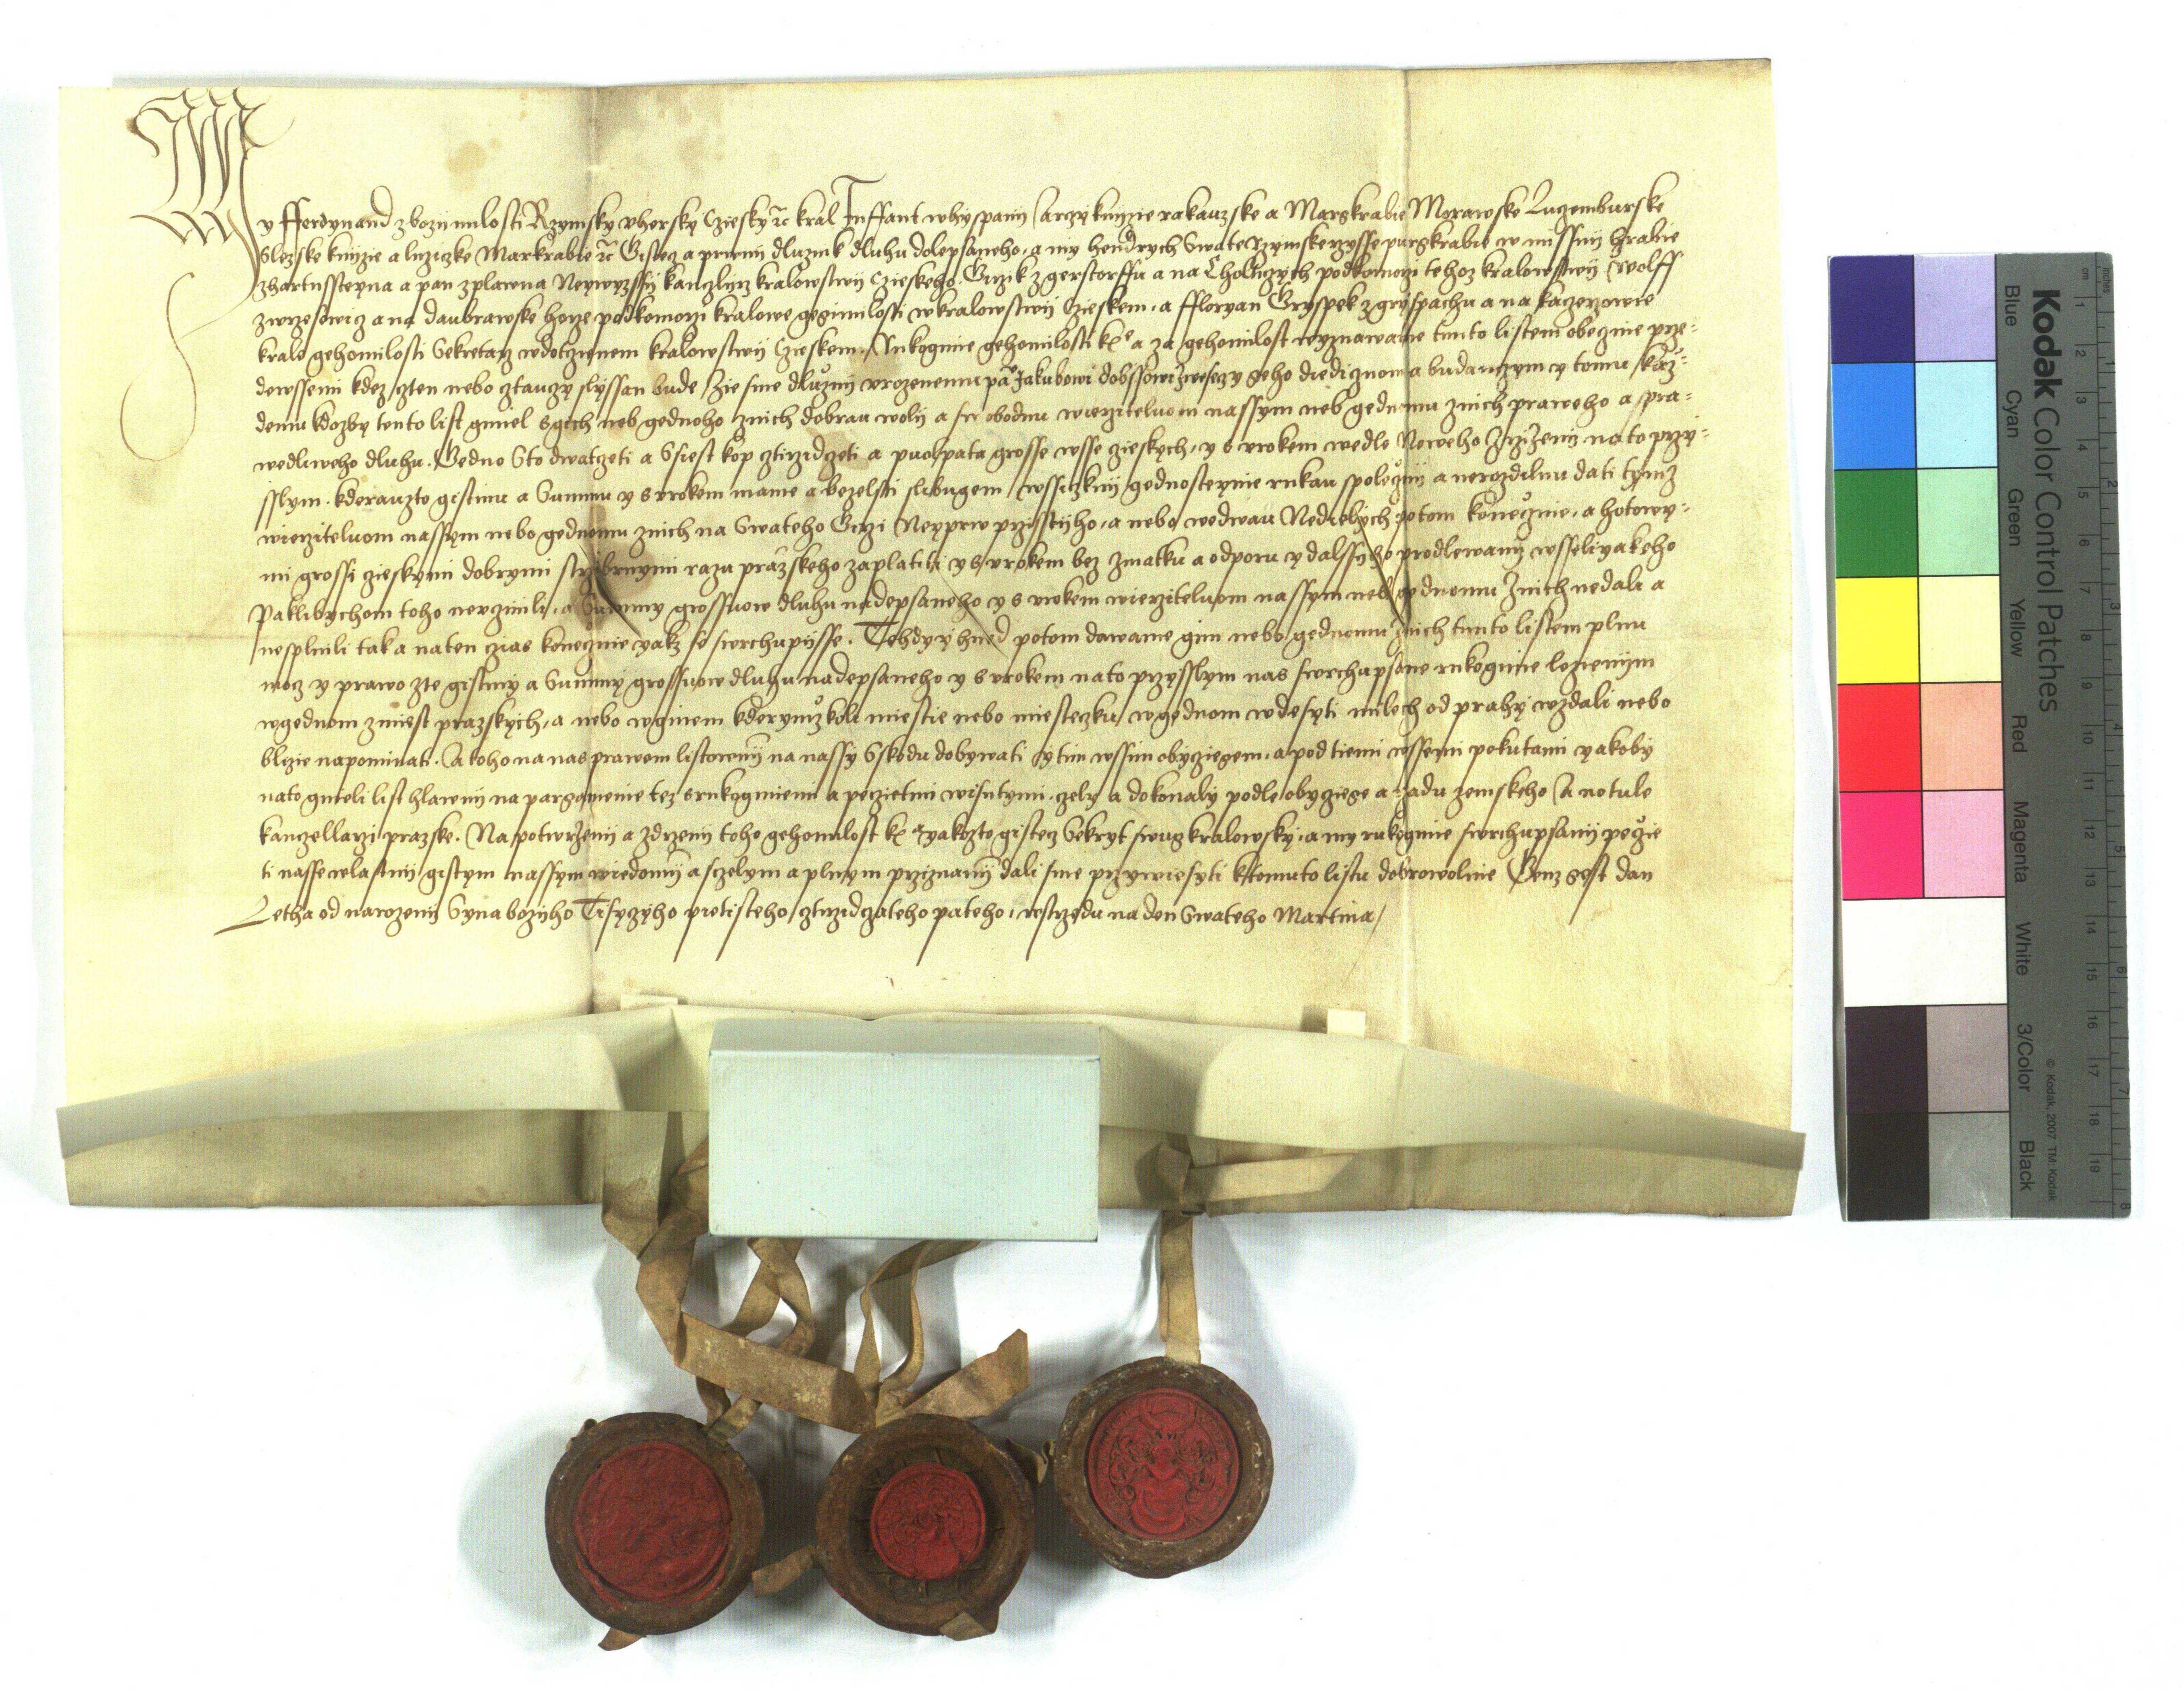 My Fferdynand z bozii milosti Rzymsky Uhersky Cziesky ꝛc kral Inffant w hyspanij Arczykniezie rakauzske a Margkrabie Morawske Luczemburske
Slezske kniezie a luziczke Markrabie ꝛc Gistecz a prwnij dluznik dluhu dolepsaneho, a my hendrych Swate rzymske rzysse purgkrabie w missnij hrabie
z hartnssteyna a pan z plawna Neywyzssij kanczlerz kralowstwij Czieskeho, Girzik z gerstorffu a na Cholticzych podkomorzi tehoz kralowstwij Wolff
z wrzesowicz a na daubrawske horze podkomorzi kralowe gegimilosti w kralowstwij Czieskem, a Ffloryan Gryspek z gryspachu a na kaczerzowie
krale gehomilosti Sekretarz w dotczienem kralowstwij Czieskem, Rukogmie gehomilosti k. a za gehomilost wyznawame tiemto listem obecznie prze-
dewssemi kdez czten nebo cztauczy slyssan bude, Zie sme dluznij urozenemu panu Jakubowi dobssowi z wesecz y geho diediczuom a buducznym y tomu kaz-
demu kdozby tento list gmiel s gich neb gednoho z nich dobrau wolij a swobodnu wierzitelnom nassym neb gednomu z nich praweho a spra-
wedliweho dluhu. Gedno Sto dwatczeti a Ssest kop cztirzidczeti a puolpata grosse wsse czieskych, y s urokem wedle Noweho Zrzizenij na to przy-
sslym. kderauzto gistinu a Summu y s urokem mame a bezelsti slibugem wssiczknij gednosteynie rukau spolecznij a nerozdilnu dati tymz
wierzitelnom nassym nebo gednomu z nich na Swateho Girzi Neyprw przisstijho, a nebo we dwau Nedielych potom konecznie, a hotowy-
mi grossi czieskymi dobrymi strzibrnymi razu prazskeho zaplatiti y s urokem bez zmatku a odporu y dalssyho prodlewanij wsseliyakeho
Paklibychom toho neuczinili, a Summy grossuow dluhu nadepsaneho y s urokem wierzitelnom nassym neb gednomu z nich nedali a
nesplnili tak a na ten czias koneczne yakz se swrchupijsse. Tehdy y hned potom dawame gim nebo gednomu z nich tiemto listem plnu
mocz y prawo z te gistiny a Summy grossuow dluhu nadepsaneho y s urokem na to przysslym nas swrchupsane rukogmie lezienijm
w gednom z miest prazskych, a nebo w ginem kderymzkoli miestie nebo miesteczku, w gednom w desyti milech od prahy wzdali nebo
blizie napominati. A toho na nas prawem listownij na nassy Sskodu dobywati y tim wssim obyczegem, a pod tiemi wssemi pokutami yakoby
na to gmeli list hlawnij na pargamenie tez s rukogmiemi a peczietmi wisutymi, czely a dokonaly podle obyczege a rzadu zemskeho A notule
kanczellarzi prazske. Na potwrzenij a zdrzenij toho gehomilost k. yakozto gistecz Sekryt swug kralowsky, a my rukogmie swrchupsanij peczie
ti nasse wlastnij gistym nassym wiedomij a s czelym a plnym przyznanij dali sme przywiesyti k tomuto listu dobrowolnie Genz gest dan
Letha od narozenij Syna bozijho Tisyczijho pietisteho cztrzidczateho pateho, w strzedu na den Swateho Martina

Kodak Color Control Patches
Blue Cyan Green Yellow Red Magenta White 3/Color Black
cm 1 2 3 4 5 6 7 8 9 10 11 12 13 14 15 16 17 18 19
inches 1 2 3 4 5 6 7 8
© Kodak, 2007 TM: Kodak